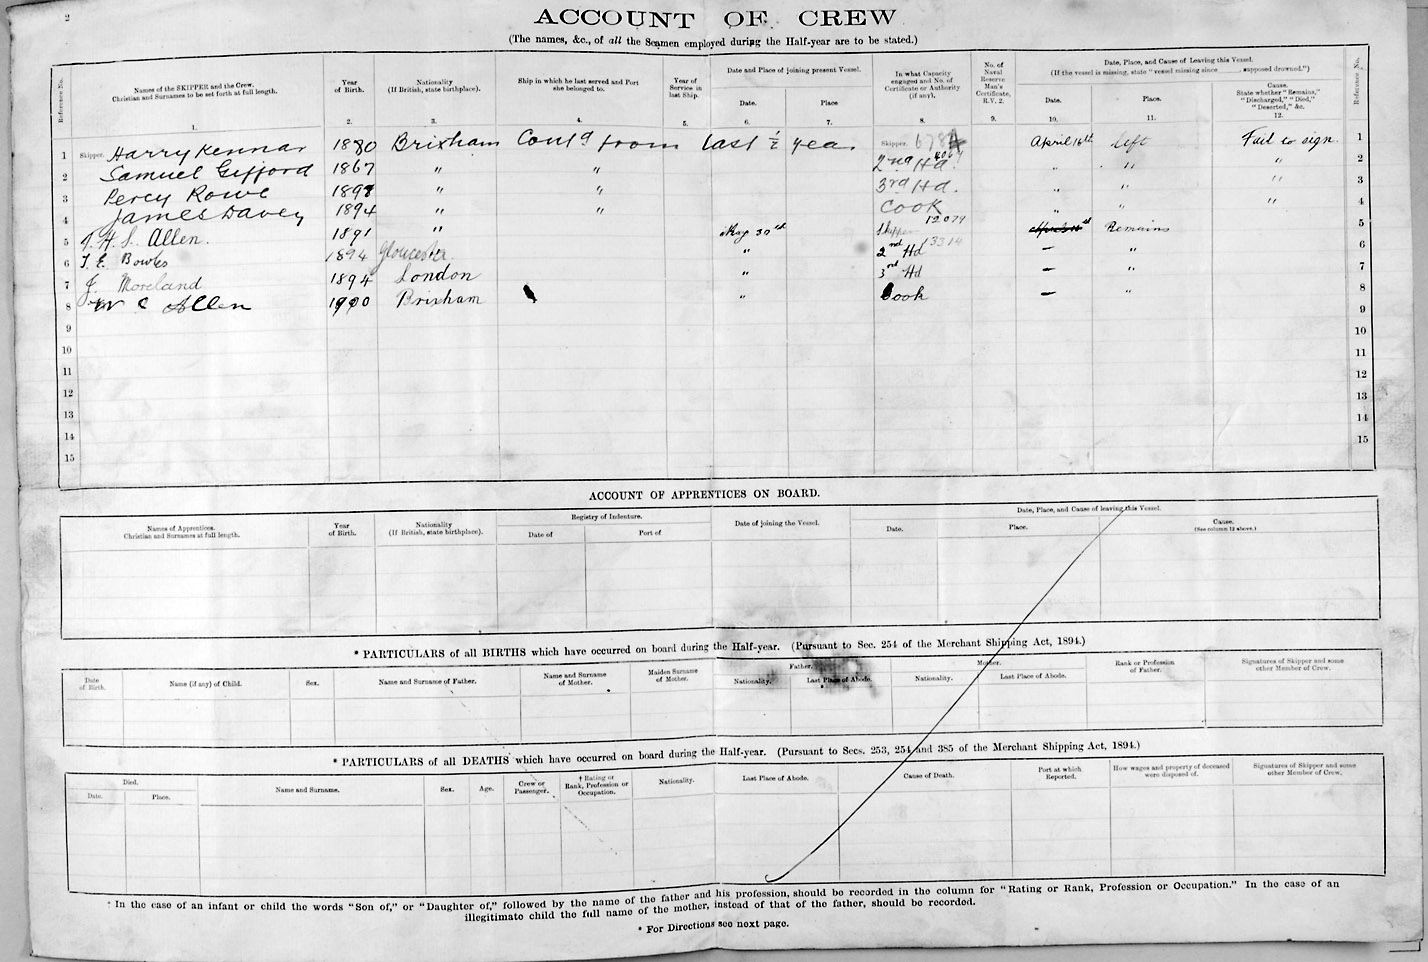 2
ACCOUNT OF CREW
(The names, &c., of all the Seamen employed during the Half-year are to be stated.)
Reference No. Names of the SKIPPER and the Crew. Christian and Surnames to be set forth at full length. Year of Birth. Nationality (If British, state birthplace). Ship in which he last served and Port she belonged to. Year of Service in last Ship. Date and Place of joining present Vessel. Date. Place In what Capacity engaged and No. of Certificate or Authority (if any). No. of Naval Reserve Man's Certificate, R.V. 2. Date, Place, and Cause of Leaving this Vessel. (If the vessel is missing, state "vessel missing since supposed drowned.") Date. Place. Cause. State whether "Remains," "Discharged," "Died," "Deserted," &c. Reference No.
1. 2. 3. 4. 5. 6. 7. 8. 9. 10. 11. 12.
1 Skipper. Harry Kennar 1880 Brixham Contd from last ½ year Skipper. April 16th left Fail to sign 1
2 Samuel Gifford 1867 " " 2nd Hd. " " " 2
3 Percy Rowe " " 3rd Hd. " " " 3
4 James Davey 1894 " " Cook " " " 4
5 T. H. S. Allen. 1891 " May 30th Skipper 12074 Remains 5
6 T. E. Bowles 1894 Gloucester " 2nd Hd 3314 – " 6
7 J. Moreland 1894 London " 3rd Hd – " 7
8 W C Allen 1900 Brixham " Cook – " 8
9 9
10 10
11 11
12 12
13 13
14 14
15 15
ACCOUNT OF APPRENTICES ON BOARD.
Names of Apprentices. Christian and Surnames at full length. Year of Birth. Nationality (If British, state birthplace). Registry of Indenture. Date of Port of Date of joining the Vessel. Date, Place, and Cause of leaving this Vessel. Date. Place. Cause. (See column 12 above.)
* PARTICULARS of all BIRTHS which have occurred on board during the Half-year. (Pursuant to Sec. 254 of the Merchant Shipping Act, 1894.)
Date of Birth. Name (if any) of Child. Sex. Name and Surname of Father. Name and Surname of Mother. Maiden Surname of Mother. Father. Nationality. Last Place of Abode. Mother. Nationality. Last Place of Abode. Rank or Profession of Father. Signatures of Skipper and some other Member of Crew.
* PARTICULARS of all DEATHS which have occurred on board during the Half-year. (Pursuant to Secs. 253, 254 and 385 of the Merchant Shipping Act, 1894.)
Died. Date. Place. Name and Surname. Sex. Age. Crew or Passenger. † Rating or Rank, Profession or Occupation. Nationality. Last Place of Abode. Cause of Death. Port at which Reported. How wages and property of deceased were disposed of. Signatures of Skipper and some other Member of Crew.
† In the case of an infant or child the words "Son of," or "Daughter of," followed by the name of the father and his profession, should be recorded in the column for "Rating or Rank, Profession or Occupation." In the case of an
illegitimate child the full name of the mother, instead of that of the father, should be recorded.
* For Directions see next page.